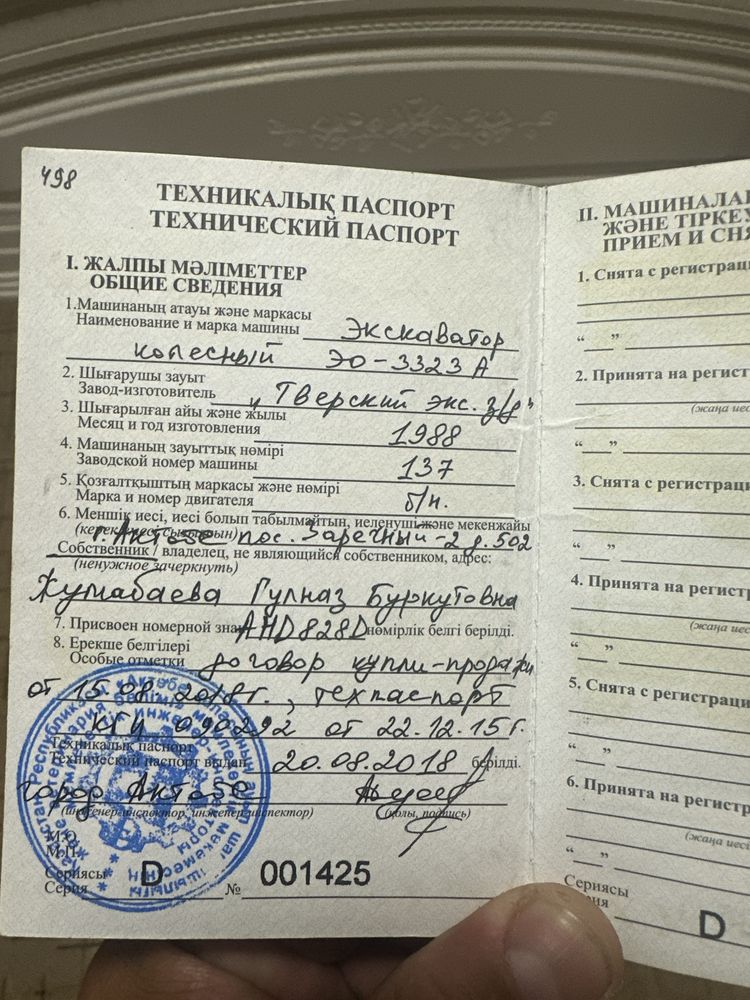 498
ТЕХНИКАЛЫҚ ПАСПОРТ
ТЕХНИЧЕСКИЙ ПАСПОРТ
I. ЖАЛПЫ МӘЛІМЕТТЕР
ОБЩИЕ СВЕДЕНИЯ
1.Машинаның атауы және маркасы
Наименование и марка машины Экскаватор
колесный ЭО-3323 А
2. Шығарушы зауыт
Завод-изготовитель „Тверский экс. з/д"
3. Шығарылған айы және жылы
Месяц и год изготовления 1988
4. Машинаның зауыттық нөмірі
Заводской номер машины 137
5. Қозғалтқыштың маркасы және нөмірі
Марка и номер двигателя б/н.
6. Меншік иесі, иесі болып табылмайтын, иеленуші және мекенжайы
г. Актобе пос. Заречный-2 д. 502
Собственник / владелец, не являющийся собственником, адрес:
(ненужное зачеркнуть)
Жумабаева Гулназ Буркутовна
7. Присвоен номерной знак AHD828D нөмірлік белгі берілді.
8. Ерекше белгілері
Особые отметки договор купли-продажи
от 15.08.2018г., техпаспорт
090292 от 22.12.15г.
Техникалық паспорт
Технический паспорт выдан 20.08.2018 берілді.
город Актобе
(инженер-инспектор, инженер-инспектор) (қолы, подпись)
М.О.
М.П.
Сериясы
Серия D № 001425
II. МАШИНАЛАР
ЖӘНЕ ТІРКЕУ
ПРИЕМ И
1. Снята с
“ ”
2. Принята на
(жаңа
“ ”
3. Снята с
“ ”
4. Принята на
(жаңа
“ ”
5. Снята с
“ ”
6. Принята на
(жаңа
“ ”
Сериясы
D